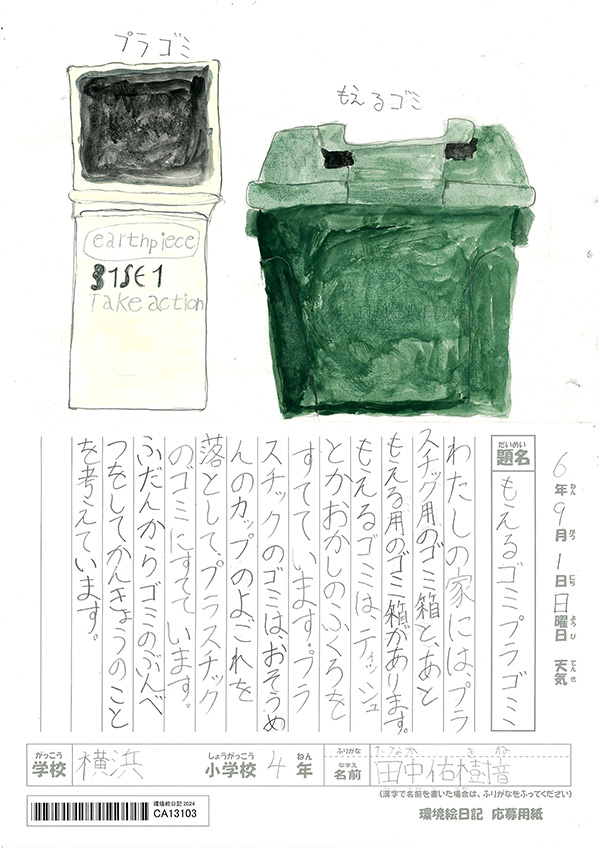 プラゴミ
もえるゴミ
earthpiece
Take action
6年9月1日日曜日 天気
ねん がつ にち ようび てんき
だいめい
題名
もえるゴミプラゴミ
わたしの家には、プラ
スチック用のゴミ箱と、あと
もえる用のゴミ箱があります。
もえるゴミは、ティッシュ
とかおかしのふくろを
すてています。プラ
スチックのゴミはおそうめ
んのカップのよごれを
落として、プラスチック
のゴミにすてています。
ふだんからゴミのぶんべ
つをしてかんきょうのこと
を考えています。
がっこう
学校 横浜
しょうがっこう ねん
小学校 4年
ふりがな たなか きね
なまえ
名前 田中佑樹音
(漢字で名前を書いた場合は、ふりがなをふってください)
環境絵日記2024
CA13103
環境絵日記 応募用紙